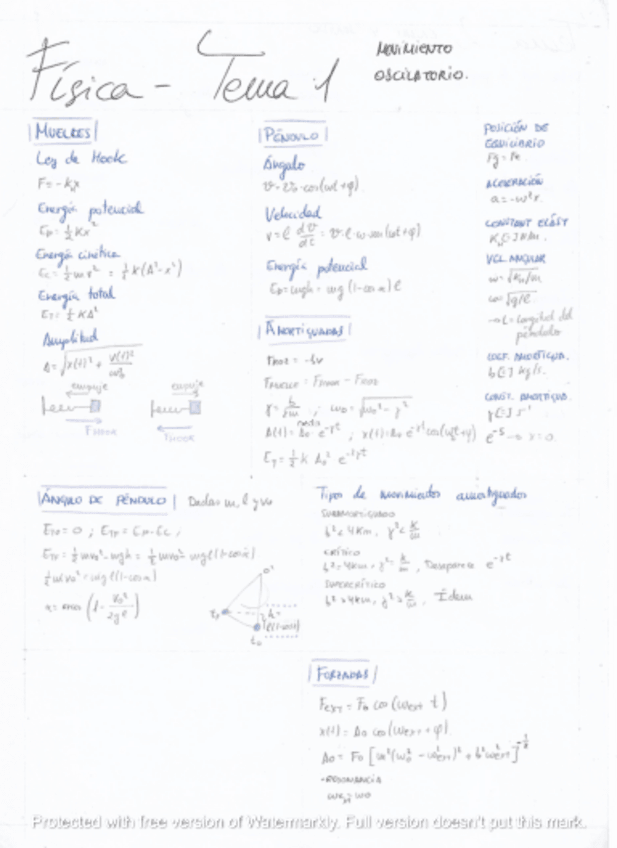 Física - Tema 1
MOVIMIENTO
OSCILATORIO.
|MUELLES|
Ley de Hook
F = -kx
Energía potencial
Ep = ½ Kx²
Energía cinética
Ec = ½ mv² = ½ K(A² - x²)
Energía total
ET = ½ KA²
Amplitud
A = √(x(t)² + v(t)²/ω0²)
empuje empuje
FHOOK FHOOK
|PÉNDULO|
Ángulo
Velocidad
Energía potencial
Ep = mgh = mg(1-cos α) l
|AMORTIGUADAS|
FAMOR = -bv
γ = b/2m ; ω0 = √(ω0² - γ²)
A(t) = A0 e^-γt ; x(t) = A0 e^-γt cos(
ET = ½ K A0² e^-2γt
POSICIÓN DE
EQUILIBRIO
Fg = Fe
ACELERACIÓN
a = -ω²x.
CONSTANT ELÁST
VEL ANGULAR
ω = √(K/m)
ω = √(g/l)
→ L = longitud del
péndulo
COEF. AMORTIGUA.
b [=] kg/s.
CONST. AMORTIGUA.
γ [=] s⁻¹
e⁻⁵ → x = 0.
|ÁNGULO DE PÉNDULO| Dadas m, l y v0
½ mv0² = mgl(1-cos α)
l(1-cos α)
Tipos de movimientos amortiguados
SUBAMORTIGUADO
b² < 4Km, γ² < K/m
CRÍTICO
b² = 4Km, γ² = K/m, Desaparece e^-γt
SUPERCRÍTICO
b² > 4Km, γ² > K/m, Ídem
|FORZADAS|
FEXT = F0 cos(ωext t)
x(t) = A0 cos(ωext + φ)
A0 = F0 [m²(ω0² - ωext²)² + b²ωext²]^-½
-RESONANCIA
ωext = ω0
Protected with free version of Watermarkly. Full version doesn't put this mark.